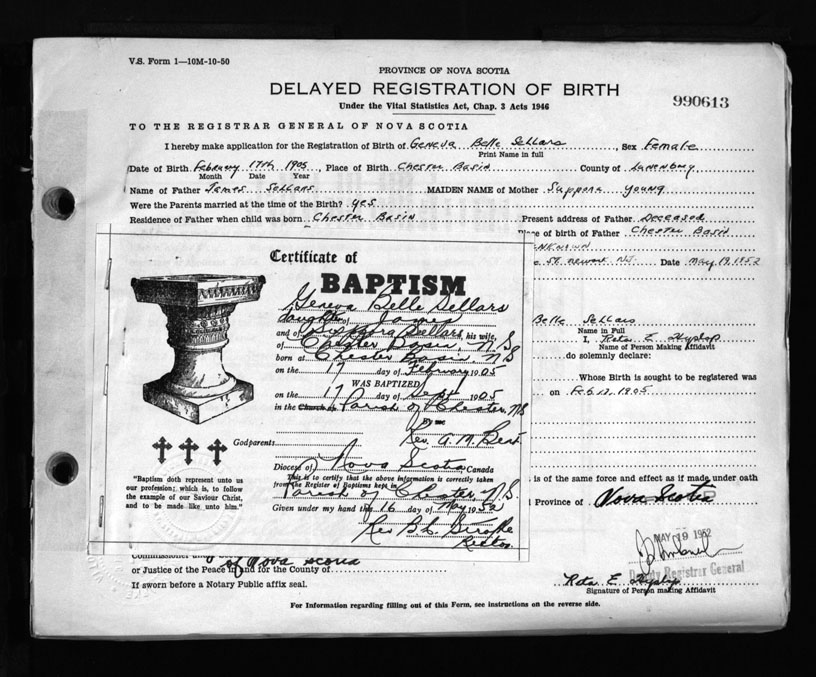 V.S. Form 1—10M-10-50
PROVINCE OF NOVA SCOTIA
DELAYED REGISTRATION OF BIRTH
Under the Vital Statistics Act, Chap. 3 Acts 1946
990613
TO THE REGISTRAR GENERAL OF NOVA SCOTIA
I hereby make application for the Registration of Birth of Geneva Belle Sellars, Sex Female
Print Name in full
Date of Birth February 17th 1905, Place of Birth Chester Basin County of Lunenburg
Month Date Year
Name of Father James Sellars MAIDEN NAME of Mother Sapphora Young
Were the Parents married at the time of the Birth? Yes
Residence of Father when child was born Chester Basin Present address of Father Deceased
Place of birth of Father Chester Basin
St. Newark N.J. Date May 19, 1952
Certificate of
BAPTISM
Geneva Belle Sellars
daughter of James
and of Sellars, his wife,
of Chester Basin, N.S.
born at Chester Basin, N.S.
on the 17 day of February 1905
WAS BAPTIZED
on the 17 day of Sept 1905
in the Church of Parish of Chester, N.S.
By me
Rev. A. M. Bent
Godparents
Diocese of Nova Scotia Canada
This is to certify that the above information is correctly taken
from the Register of Baptisms kept in
Parish of Chester N.S.
Given under my hand this 16 day of May 1952
Rev.
Rector
"Baptism doth represent unto us
our profession; which is, to follow
the example of our Saviour Christ,
and to be made like unto him."
Belle Sellars
Name in Full
I, Reta E. Hyslop
Name of Person Making Affidavit
do solemnly declare:
Whose Birth is sought to be registered was
on Feb 17, 1905
is of the same force and effect as if made under oath
Province of Nova Scotia
MAY 19 1952
Deputy Registrar General
of Nova Scotia
or Justice of the Peace in and for the County of
If sworn before a Notary Public affix seal.
Reta E. Hyslop
Signature of Person making Affidavit
For Information regarding filling out of this Form, see instructions on the reverse side.